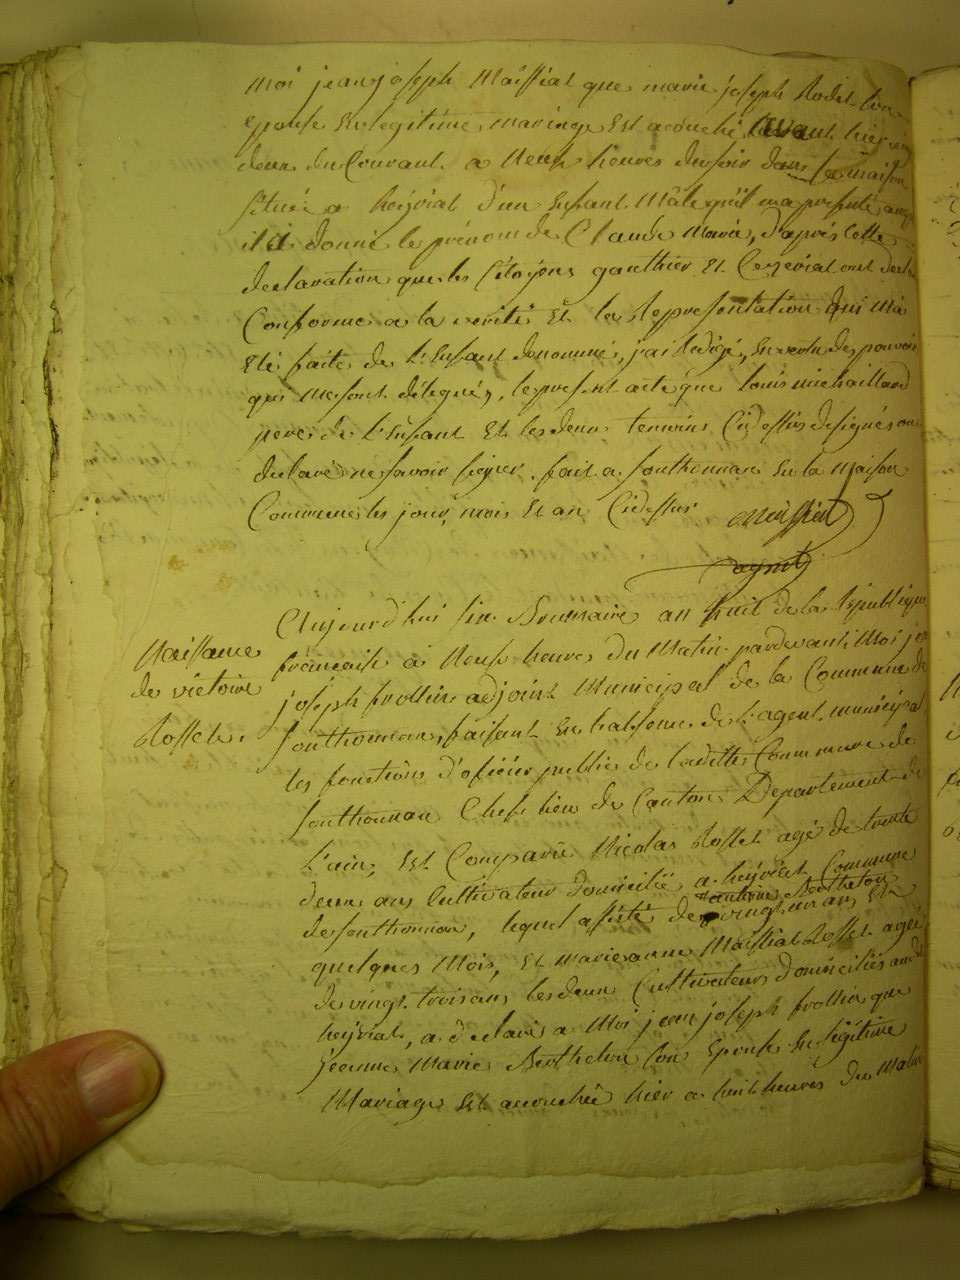 Moi jean joseph Maissiat que marie joseph Rodet son
epouse en legitime mariage Est acouché avant hier
deux du Courant a Neuf heures du soir dans sa maison
située a heyriat d'un Enfant Mâle qu'il m'a presenté auquel
il a donné le prénom de Claude Marie, d'après cette
declaration que les Citoyens gauthier Et
Conforme a la verité Et la Representation qui m'a
Eté faite de l'Enfant denommé, j'ai Redigé, En vertu des pouvoirs
qui me sont délegués, le present acte que louis michaillard
pere de l'Enfant Et les deux temoins Cidessus designés ont
declaré ne savoir signer. fait a sonthonnax En la Maison
Commune les jour, mois Et an Cidessus
Maissiat
Naissance
de victoire
Rosset.
Aujourd'hui six Brumaire an huit de la Republique
française à Neuf heures du Matin pardevant Moi jean
joseph frollin adjoint Municipal de la Commune de
Sonthonnax, faisant En l'absence de l'agent municipal
les fonctions d'oficier public de ladite Commune de
sonthonnax Chef lieu de Canton Departement de
l'ain, Est Comparu Nicolas Rosset agé de trente
deux ans Cultivateur domicilié a heyriat Commune
de sonthonnax, lequel assisté de antoine Berthelon vingt un ans Et
quelques Mois, Et marie anne Maissiat Rosset agée
de vingt trois ans, les deux Cultivateurs domiciliés audit
heyriat, a déclaré a Moi jean joseph frollin que
jeanne Marie Berthelon son Epouse En légitime
Mariage Est acouchée hier a huit heures du Matin